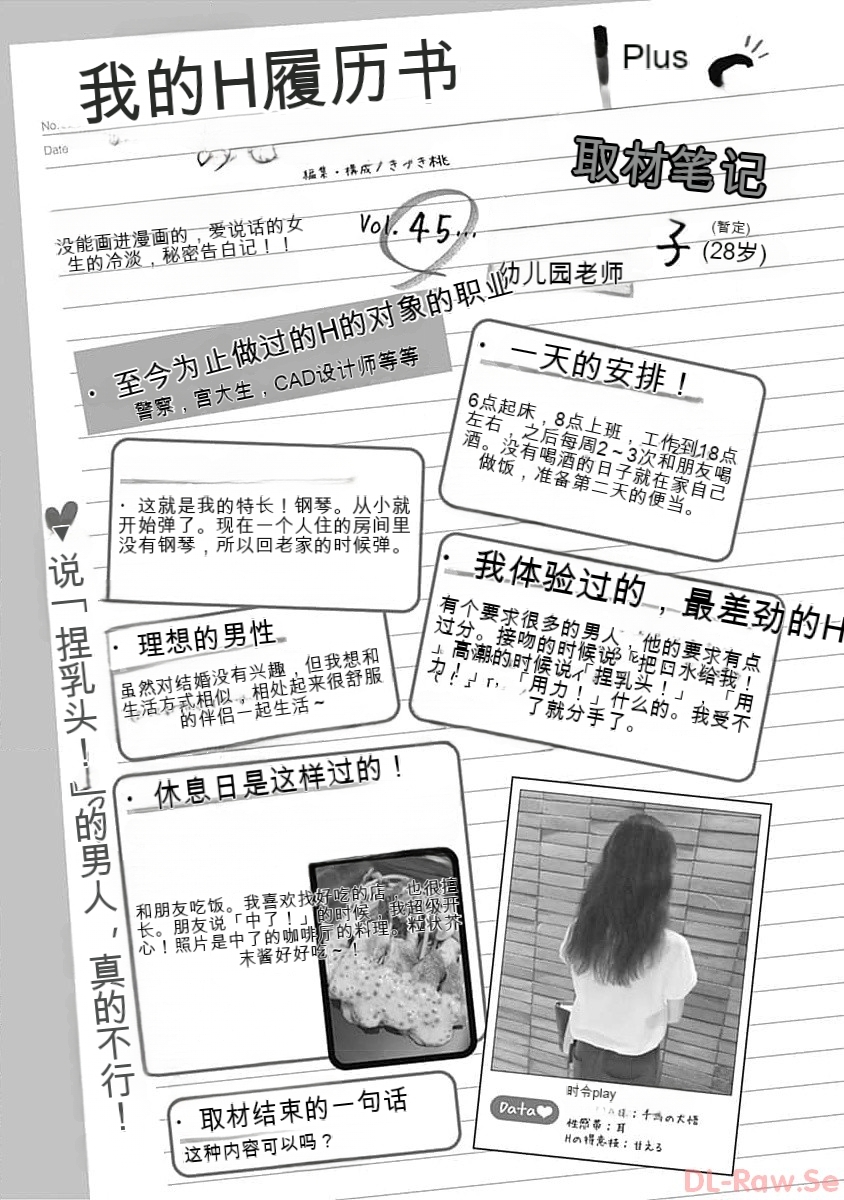 我的H履历书
Plus
No.
Date
編集・構成/きづき桃
取材笔记
没能画进漫画的，爱说话的女
生的冷淡，秘密告白记！！
Vol. 45...
子
(暂定)
(28岁)
幼儿园老师
· 至今为止做过的H的对象的职业
警察，宫大生，CAD设计师等等
· 一天的安排！
6点起床，8点上班，工作到18点
左右，之后每周2～3次和朋友喝
酒。没有喝酒的日子就在家自己
做饭，准备第二天的便当。
· 这就是我的特长！钢琴。从小就
开始弹了。现在一个人住的房间里
没有钢琴，所以回老家的时候弹。
· 我体验过的，最差劲的H
有个要求很多的男人，他的要求有点
过分。接吻的时候说「把口水给我！
」高潮的时候说「捏乳头！」，「用
力！」，「用力！」什么的。我受不
了就分手了。
· 理想的男性
虽然对结婚没有兴趣，但我想和
生活方式相似，相处起来很舒服
的伴侣一起生活～
说「捏乳头！」的男人，真的不行！
· 休息日是这样过的！
和朋友吃饭。我喜欢找好吃的店，也很擅
长。朋友说「中了！」的时候，我超级开
心！照片是中了的咖啡厅的料理。粒状芥
末酱好好吃～！
· 取材结束的一句话
这种内容可以吗？
Data
时令play
：千鳥の大悟
性感帯：耳
Hの得意技：甘える
DL-Raw.Se